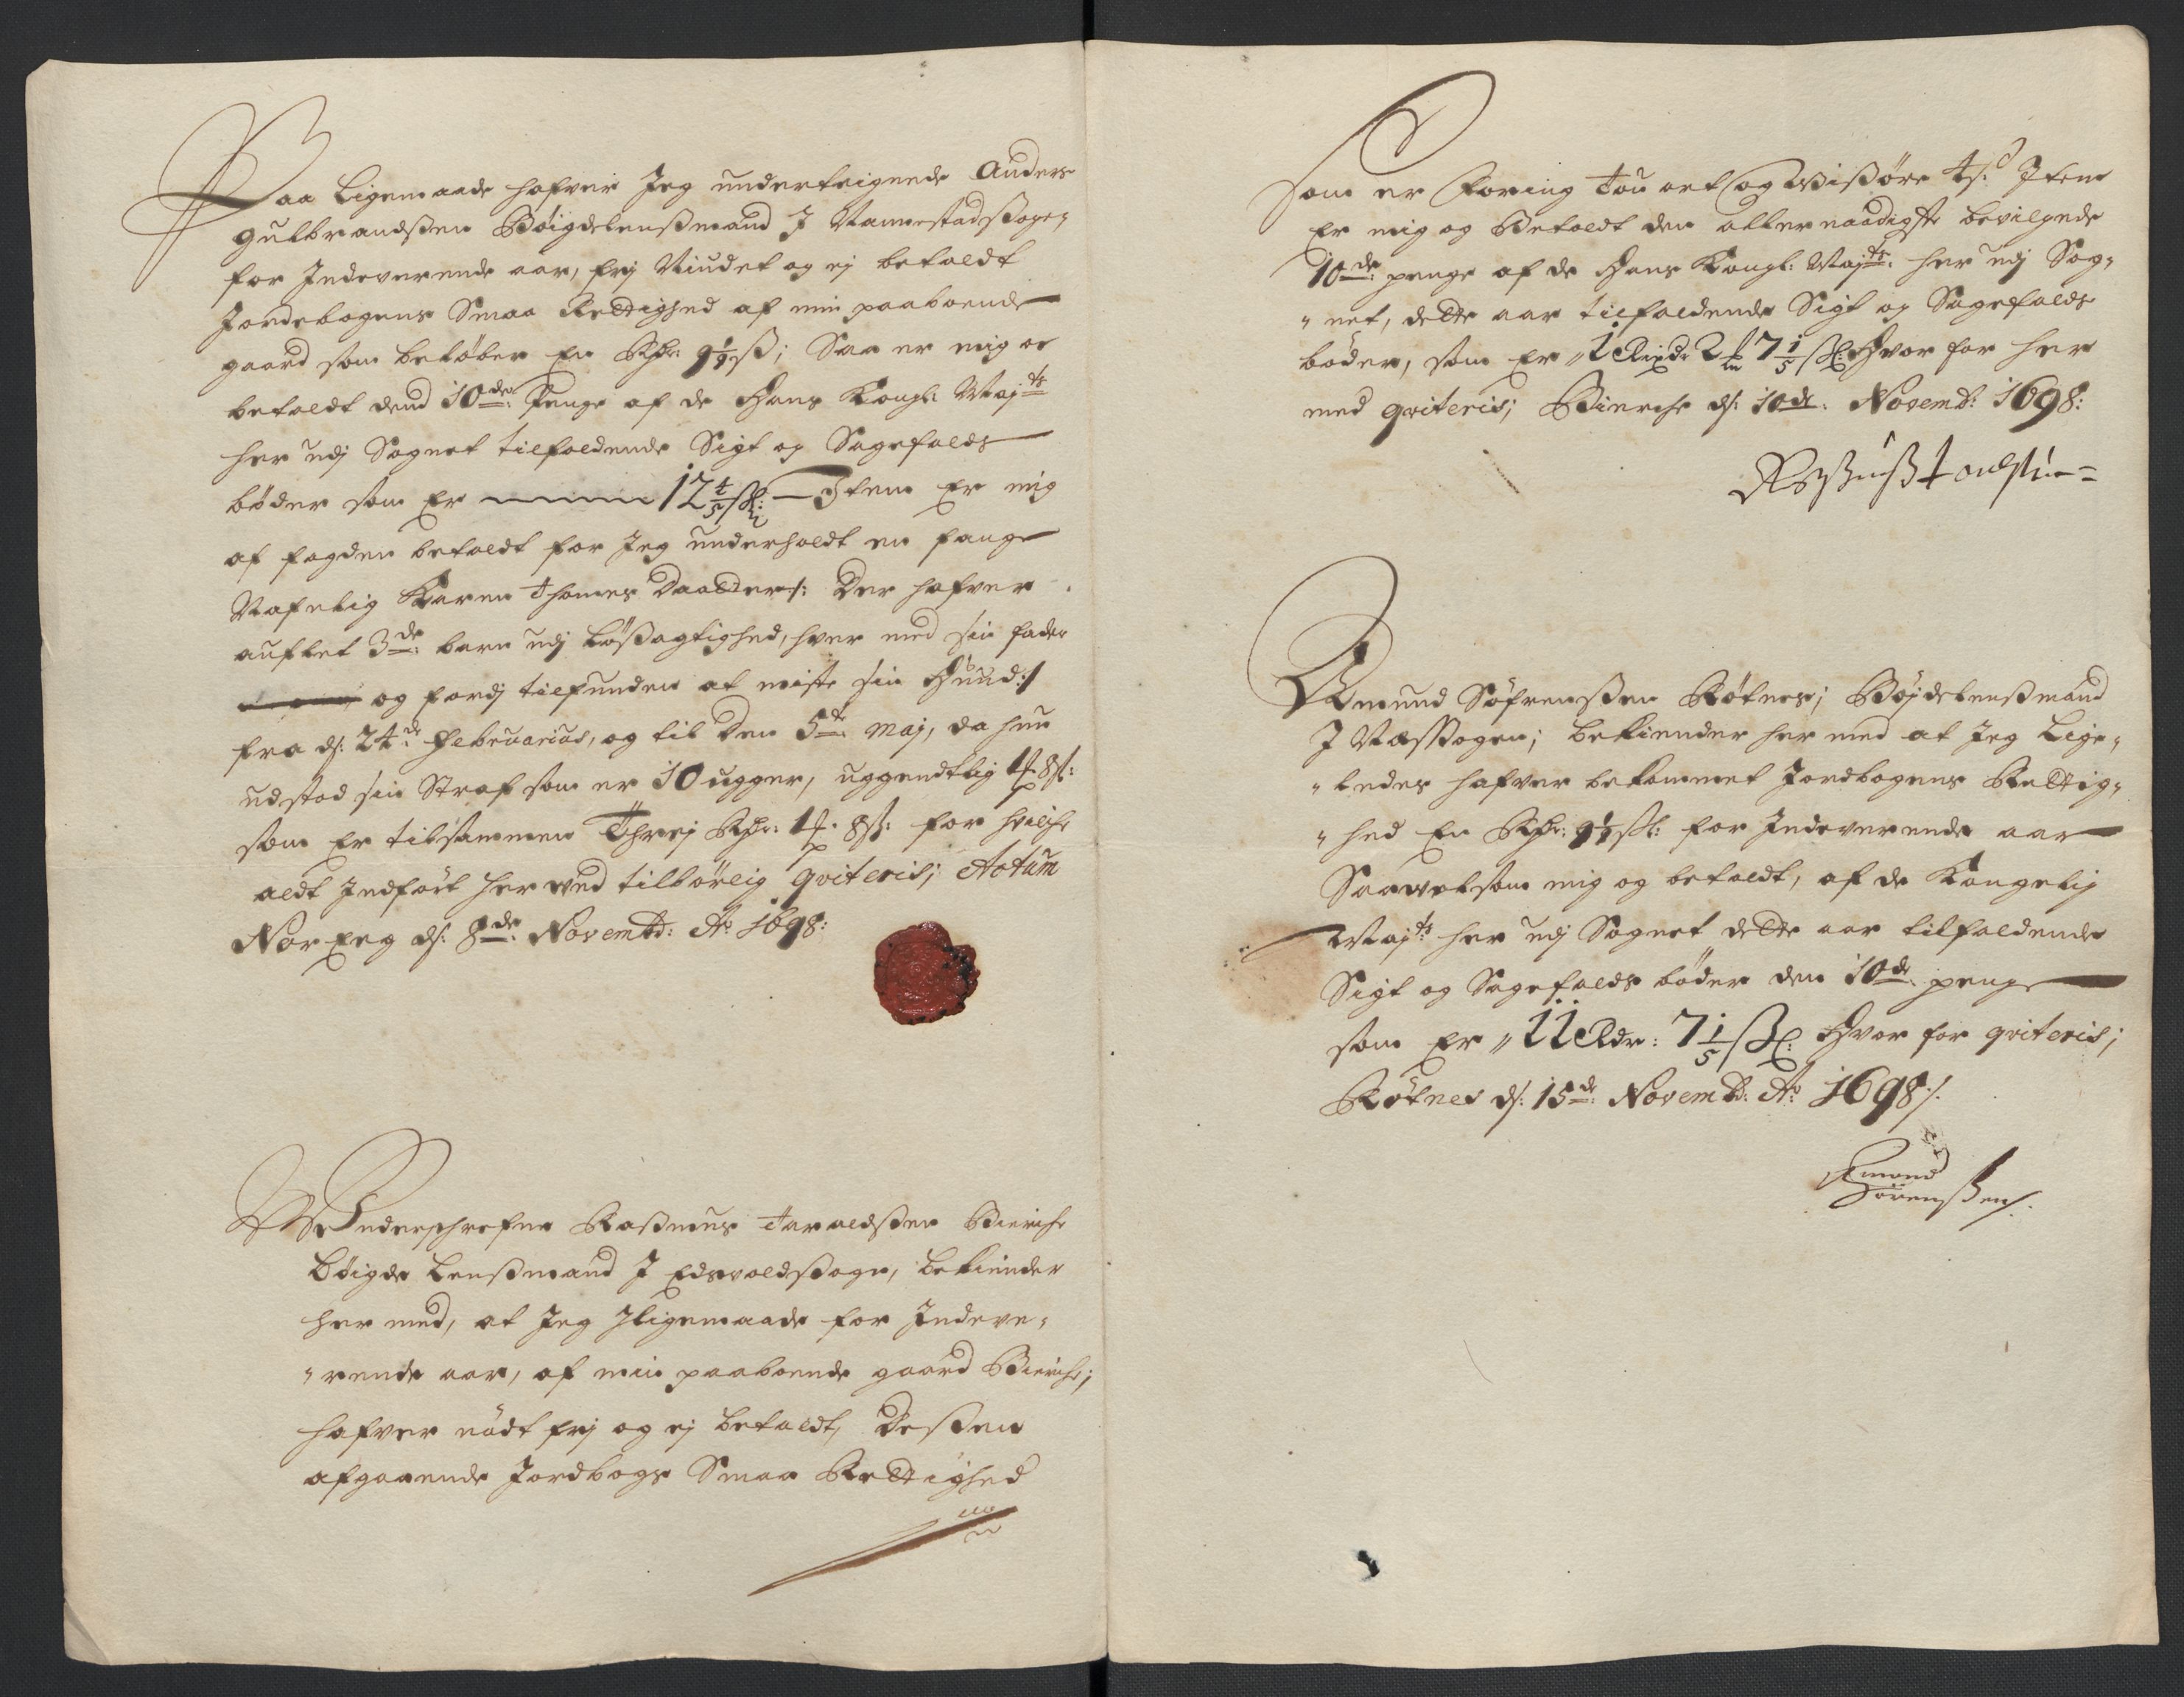 Paa Ligemaade hafver Jeg underteignede Anders
gulbrandßen Bøigdelensmand J Nannestadßogn,
for Indeverende aar, frj Niudet og ej betaldt
Jordebogens Smaa Rettighed af min paaboende
gaard som beløber En Rdr: 9 ß; Saa er mig oc
betaldt dend 10de: Penge af de Hans Kongl: Maj:ts
her udj Sognet tilfaldende Sigt og Sagefalds
bøder som Er 12 4/5 ß: Item Er mig
af fogden betaldt for Jeg underholdt en fange
Nafnlig Karen Thomes Daatter /: Der hafver
auflet 3de: barn udj Løßagtighed, hver med sin fader
og fordj tilfunden at miste sin Huud :/
fra ds: 24de Februarius, og til Den 5te Maj, da hun
udstod sin Straf som er 10 ugger, uggendtlig 1 8ß:
som Er tilsammen Threj Rdr: 1 8ß: for hvilche
aldt Indført her ved tilbørlig qviteris; Actum
Nor Eeg ds: 8de: Novembr: Ao 1698:
Underschrefne Raßmus Taraldßen Bierche
bøigde Lensmand J Edsvoldßogn, bekiender
her med, at Jeg Jligemaade for Indeve,
,rende aar, af min paaboende gaard Bierche;
hafver nødt frj og ej betaldt, Desßen
afgaaende Jordbogs Smaa Rettighed
som er Foring Tou ort og Wißøre 4s: Item
Er mig og Betaldt den allernaadigste bevilgede
10de: penge af de Hans Kongl: Maj:ts: her udj Sog,
,net, dette aar tilfaldende Sigt og Sagefalds
bøder, som Er, 1 Rixdr 2 7 1/5 ß: Hvor for her
med qviteris; Bierche ds: 10de: Novemb: 1698:
Amund Søfrenßen Røtnes; Bøjdelensmand
J Næsßogen; bekiender her med at Jeg Lige,
,ledes hafver bekommet Jordbogens Rettig,
,hed En Rdr: 9 ß: for Indeverende aar
Saavelsom mig og betaldt, af de Kongelig
Maj:ts her udj Sognet dette aar tilfaldende
Sigt og Sagefalds bøder den 10de penge
som Er, 11 Rdr: 7 1/5 ß: Hvor for qviteris;
Røtnes ds: 15de: Novembr: Ao 1698 /.
Amond
Sørenßen /.